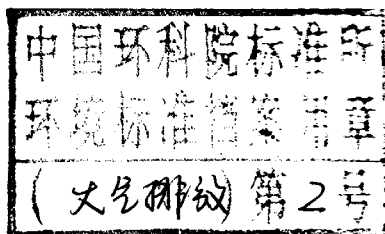 中国环科院标准所
环境标准档案用章
(大气排放)第2号